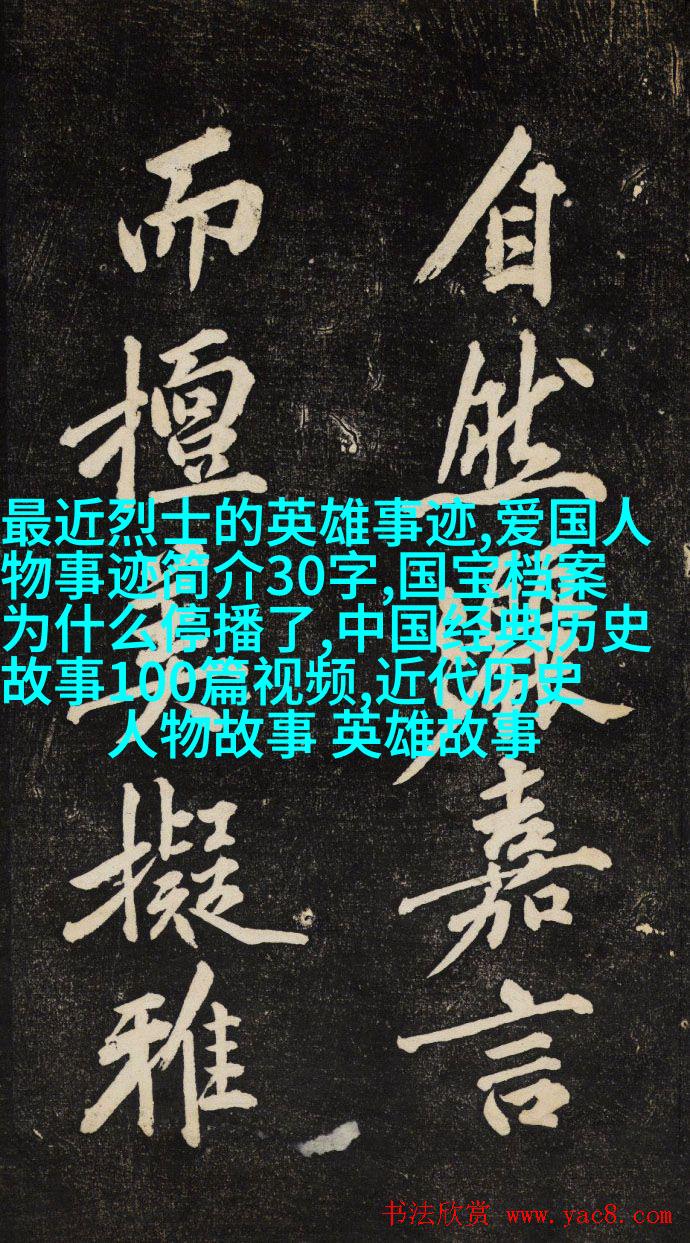 自然嘉言
而擅擬雅
最近烈士的英雄事迹,爱国人
物事迹简介30字,国宝档案
为什么停播了,中国经典历史
故事100篇视频,近代历史
人物故事 英雄故事
书法欣赏 www.yac8.com